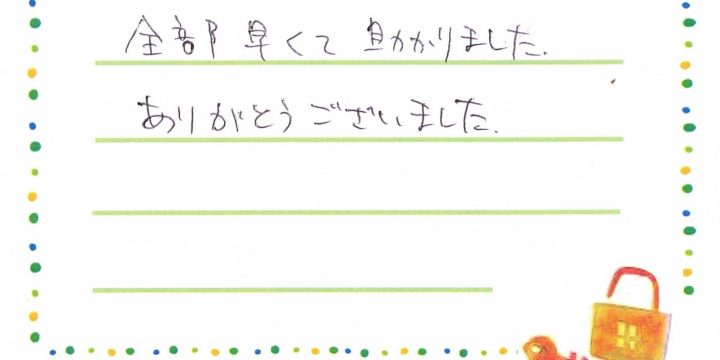 全部早くて助かりました.
ありがとうございました.